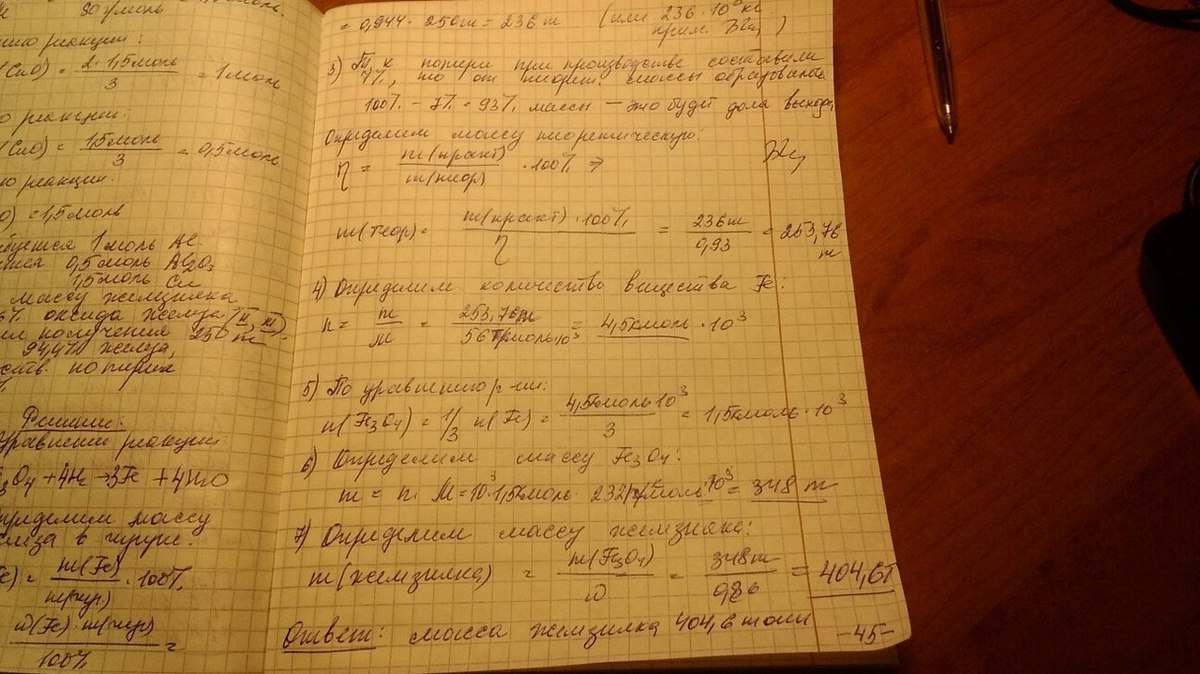 80 г/моль
реакции:
(CuO) = 2·1,5моль / 3 = 1моль
реакции.
(CuO) = 1,5моль / 3 = 0,5моль
реакции.
) = 1,5моль
1моль Al
0,5моль Al2O3
1,5моль Cu
массу железняка
оксида железа (II, III)
получения 250 т
94,4% железа,
Решение:
Уравнение реакции:
O4 + 4H2 → 3Fe + 4H2O
массу
железа в чугуне:
= m(Fe) / m(чуг) · 100%
ω(Fe) · m(чуг) / 100% =
= 0,944 · 250т = 236 т (или 236 · 10³ кг
прим.
3) Т. к потери при производстве составили
7%, то от теорет. массы образовалось
100% - 7% = 93% массы — это будет доля выхода
Определим массу теоретическую:
η = m(практ) / m(теор) · 100% ⇒
m(теор) = m(практ) · 100% / η = 236т / 0,93 = 253,76 т
4) Определим количество вещества Fe:
n = m / M = 253,76т / 56 моль·10³ = 4,5кмоль · 10³
5) По уравнению р-ии:
n(Fe3O4) = 1/3 n(Fe) = 4,5кмоль·10³ / 3 = 1,5кмоль · 10³
6) Определим массу Fe3O4:
m = n · M = 10³·1,5кмоль · 232 г/моль·10³ = 348 т
7) Определим массу железняка:
m(железняка) = m(Fe3O4) / ω = 348т / 0,86 = 404,6т
Ответ: масса железняка 404,6 тонн
-45-